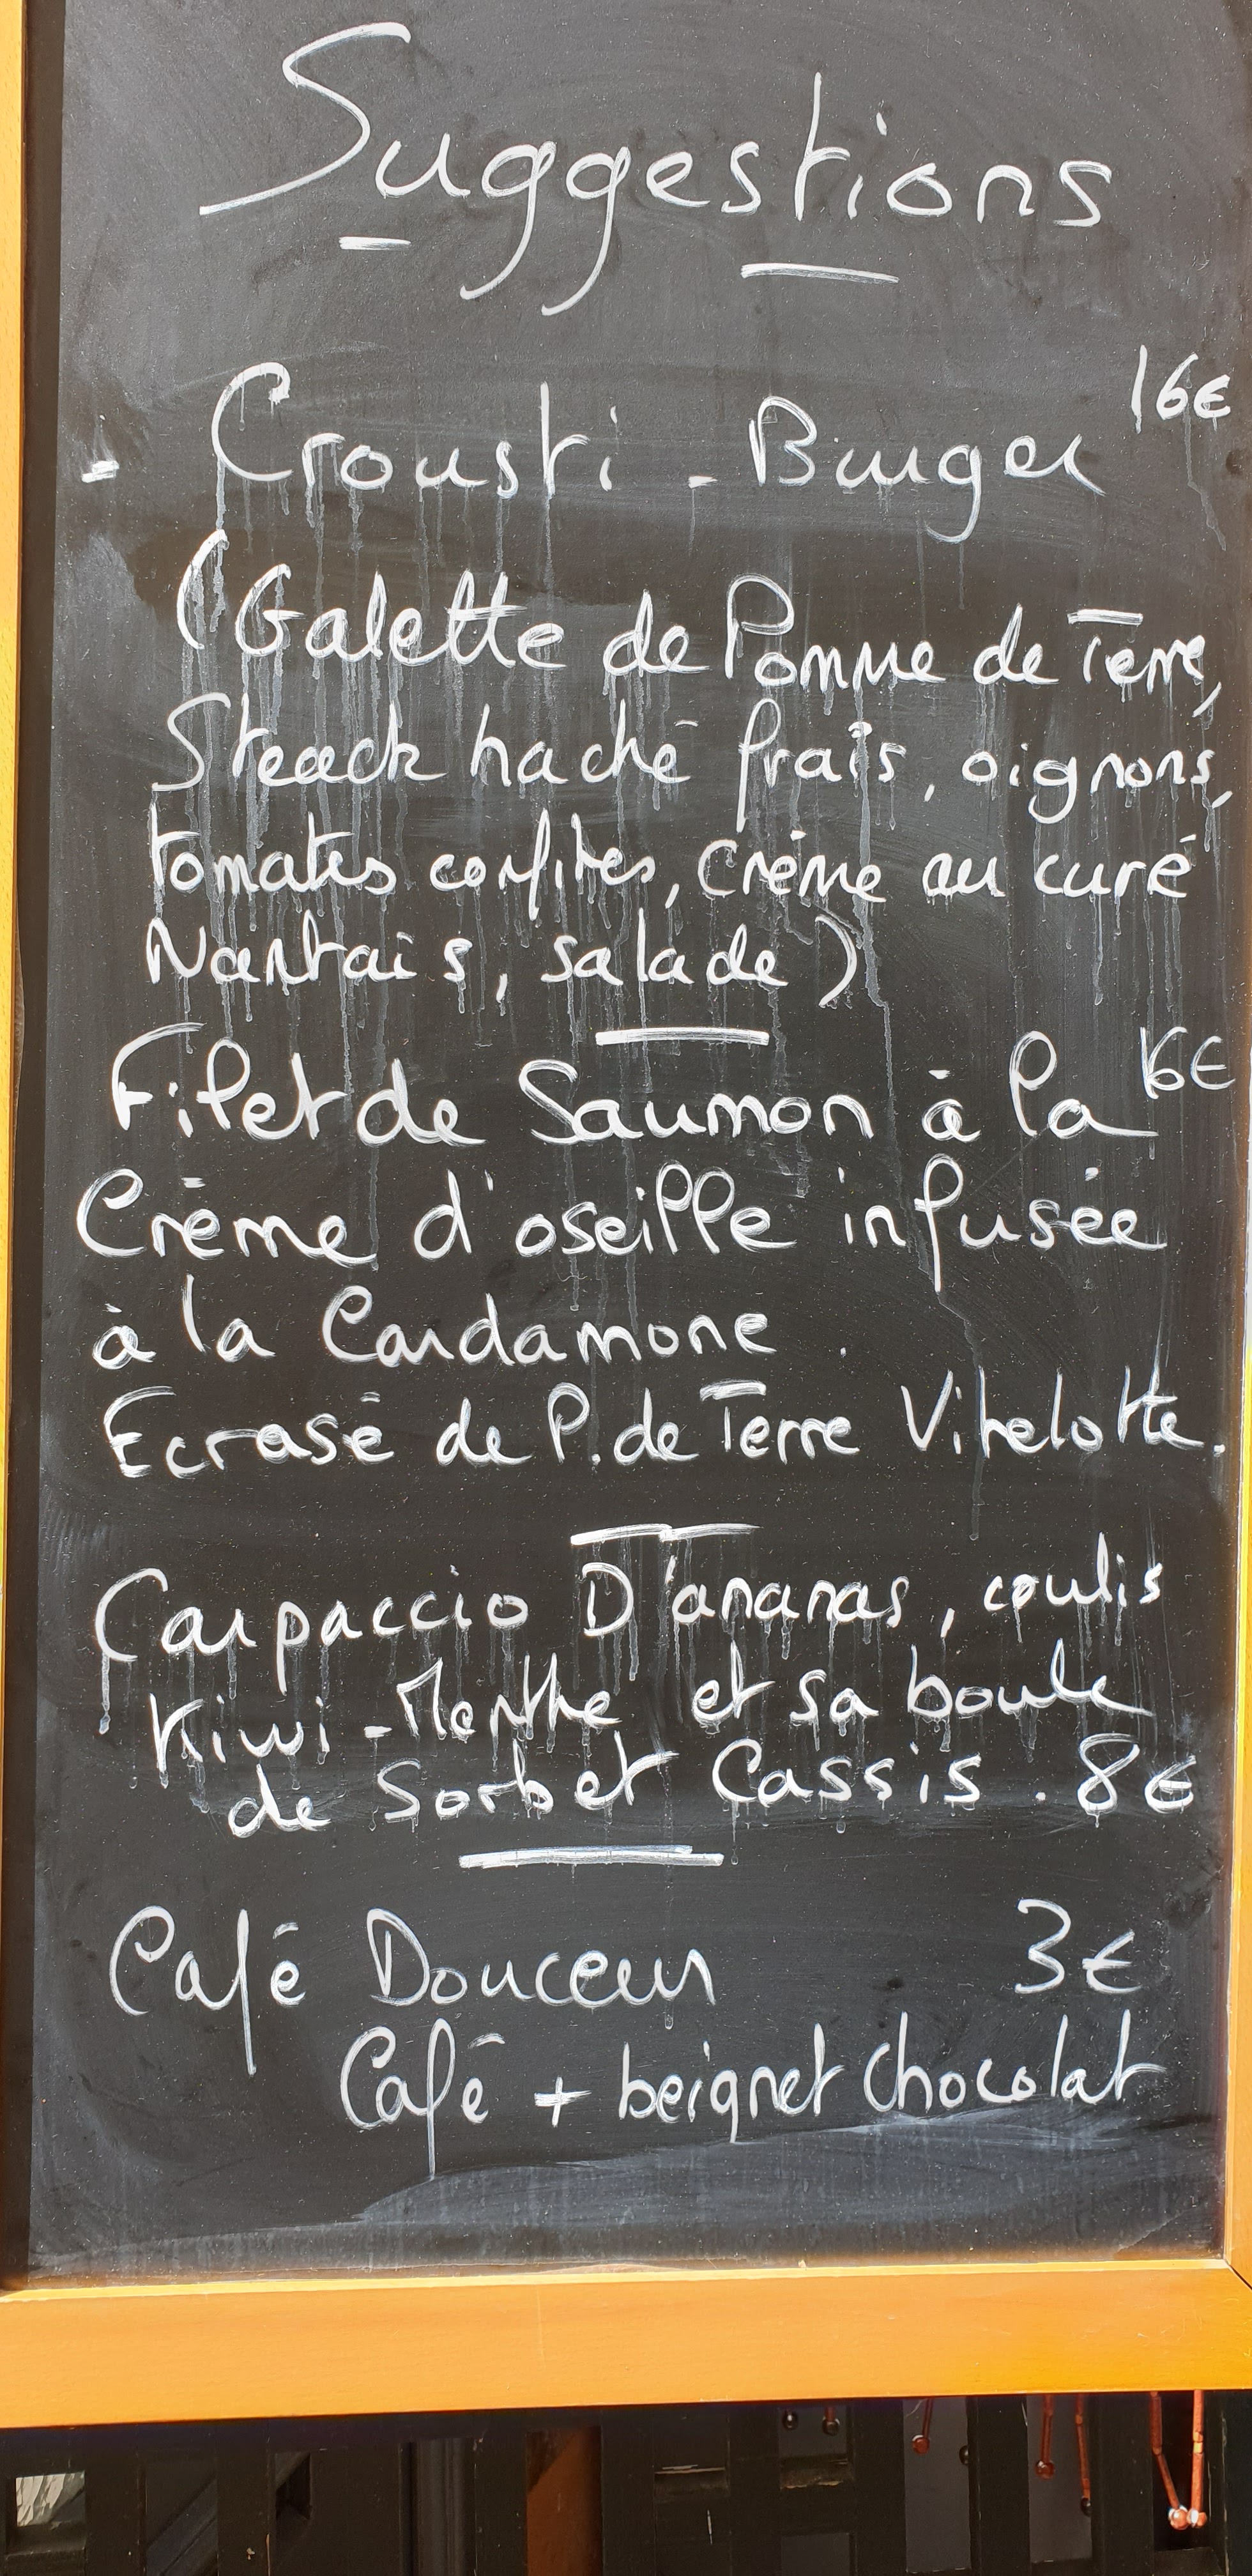 Suggestions
16€
- Crousti - Burger
(Galette de Pomme de Terre,
Steack haché frais, oignons,
tomates confites, crème au curé
Nantais, salade)
Filet de Saumon à la 16€
Crème d'oseille infusée
à la Cardamone.
Ecrasé de P. de Terre Vitelotte.
Carpaccio D'ananas, coulis
Kiwi-Menthe et sa boule
de Sorbet Cassis. 8€
Café Douceur 3€
Café + beignet chocolat